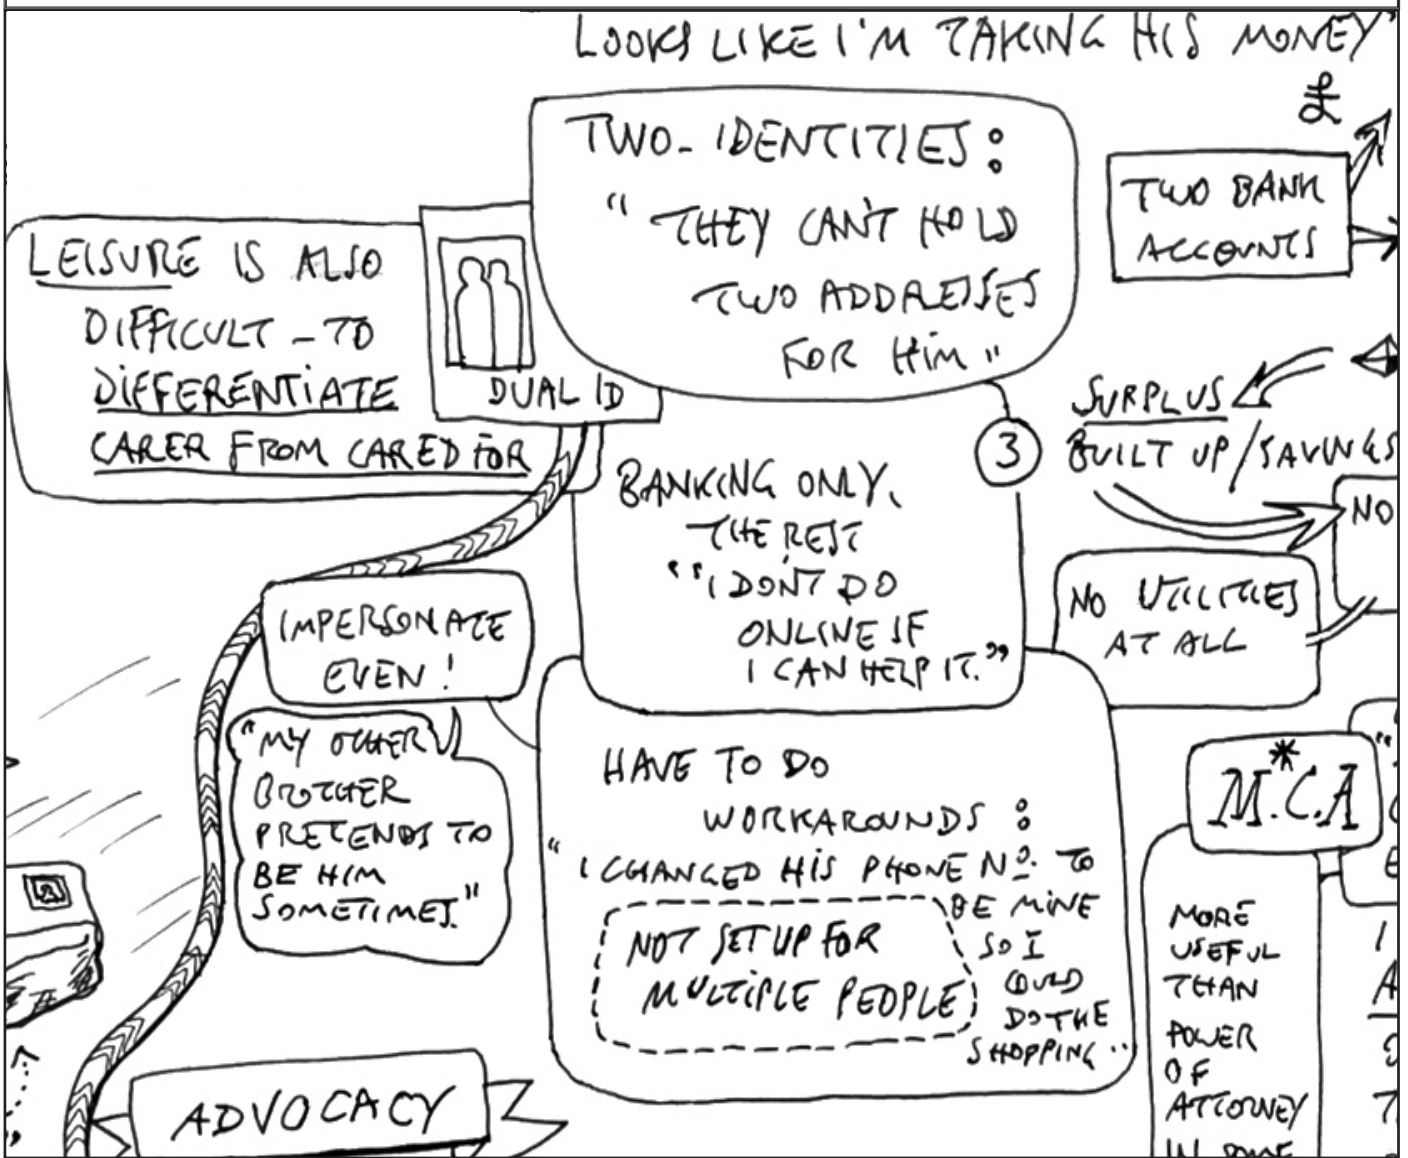 LOOKS LIKE I'M TAKING HIS MONEY"
£
TWO-IDENTITIES:
"THEY CAN'T HOLD
TWO ADDRESSES
FOR HIM"
TWO BANK
ACCOUNTS
LEISURE IS ALSO
DIFFICULT - TO
DIFFERENTIATE
CARER FROM CARED FOR
DUAL ID
3
SURPLUS
BUILT UP/SAVINGS
BANKING ONLY.
THE REST
"I DON'T DO
ONLINE IF
I CAN HELP IT."
NO
NO UTILITIES
AT ALL
IMPERSONATE
EVEN!
"MY OTHER
BROTHER
PRETENDS TO
BE HIM
SOMETIMES."
HAVE TO DO
WORKAROUNDS:
"I CHANGED HIS PHONE No. TO
BE MINE
SO I
COULD
DO THE
SHOPPING"
NOT SET UP FOR
MULTIPLE PEOPLE
M.*C.A
MORE
USEFUL
THAN
POWER
OF
ATTORNEY
IN SOME
ADVOCACY